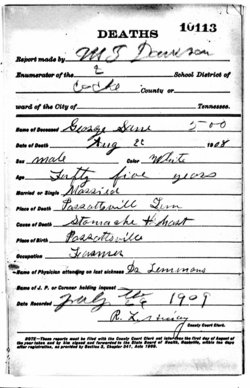 DEATHS 10113
Report made by M T Dawson
Enumerator of the 2 School District of
Cocke County or
ward of the City of Tennessee.
Name of Deceased George Sane 500
Date of Death Aug 22 1908
Sex male Color White
Age Fifty five years
Married or Single Married
Place of Death Tenn
Cause of Death
Place of Birth
Occupation Farmer
Name of Physician attending on last sickness Dr Lemmons
Name of J. P. or Coroner holding inquest
Date Recorded July 1909
R.
County Court Clerk.
NOTE—These reports must be filed with the County Court Clerk not later than the first day of August of
the year taken and by him signed and forwarded to the State Board of Health, Nashville, within ten days
after registration, as provided by Section